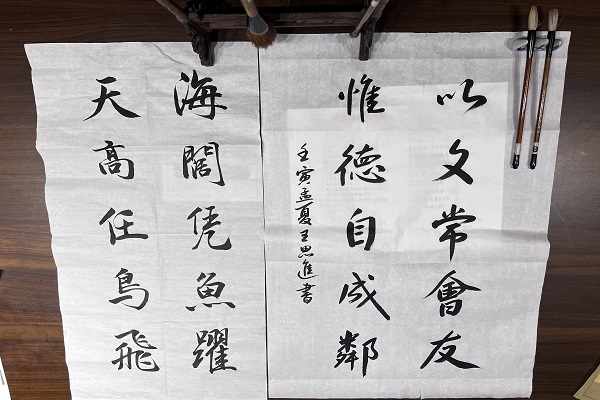 以文常會友
惟德自成鄰
壬寅孟夏王思進書
海闊凭魚躍
天高任鳥飛